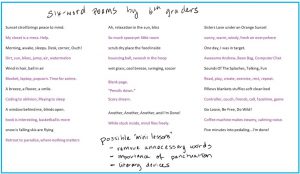 six-word poems by 6th graders
Sunset cries/brings peace to mind.
My closet is a mess. Help.
Morning, awake, sleepy. Desk, corner, Ouch!
Dirt, run, bikes, jump, air, watermelon
Wind in hair, ball in air
Market, laptop, popcorn. Time for anime.
A breeze, a flower, a smile.
Coding to oblivion. Playing to sleep
A window behind me, blinds open.
food is interesting, basketball is more
snow is falling skis are flying
Retreat to paradise, where nothing matters
Ah, relaxation in the sun, bliss
So much space yet little room
scrub dry place the food inside
bouncing ball, swoosh in the hoop
wet grass, cool breeze, swinging, soccer
Blank page.
"Pencils down."
Score dream.
Another, Another, Another, and I'm Done!
While stuck inside, mind flies freely.
Sister's Love under an Orange Sunset
sunny, warm, windy, fresh air everywhere
One day, I was in target.
Awesome Andrew, Book Bag, Computer Chair
Sounds Of The Splashes, Talking, Fun
Read, play, create, exercise, rest, repeat.
Pillows blankets stuffies soft clean bed
Controller, couch, friends, call, fast, time, game
Go Leave, Be Free, Do Wild!
Coffee machine makes creamy, calming noise.
Five minutes into pedaling...I'm done!
possible "mini lessons"
- remove unnecessary words
- importance of punctuation
- literary devices